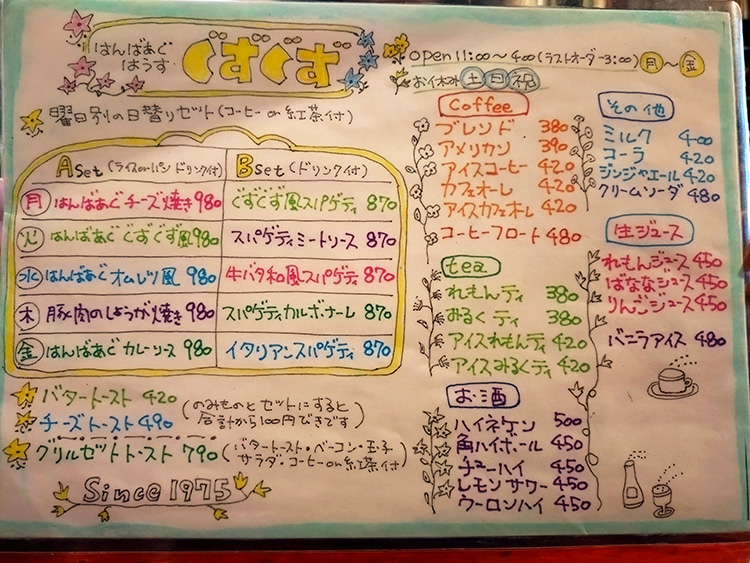 はんばあぐ
はうす
ぐずぐず
open 11:00〜4:00(ラストオーダー3:00) 月〜金
お休み 土日祝
曜日別の日替りセット(コーヒー or 紅茶付)
A set (ライス or パン ドリンク付) B set (ドリンク付)
月 はんばあぐチーズ焼き 980 ぐずぐず風スパゲティ 870
火 はんばあぐぐずぐず風 980 スパゲティミートソース 870
水 はんばあぐオムレツ風 980 牛バタ和風スパゲティ 870
木 豚肉のしょうが焼き 980 スパゲティカルボナーレ 870
金 はんばあぐカレーソース 980 イタリアンスパゲティ 870
バタートースト 420
チーズトースト 490
(のみものとセットにすると
合計から100円びきです)
グリルゼットトースト 790 (バタートースト・ベーコン・玉子
サラダ・コーヒー or 紅茶付)
Since 1975
Coffee
ブレンド 380
アメリカン 390
アイスコーヒー 420
カフェオーレ 420
アイスカフェオレ 420
コーヒーフロート 480
tea
れもんティ 380
みるくティ 380
アイスれもんティ 420
アイスみるくティ 420
お酒
ハイネケン 500
角ハイボール 450
チューハイ 450
レモンサワー 450
ウーロンハイ 450
その他
ミルク 400
コーラ 420
ジンジャエール 420
クリームソーダ 480
生ジュース
れもんジュース 450
ばななジュース 450
りんごジュース 450
バニラアイス 480